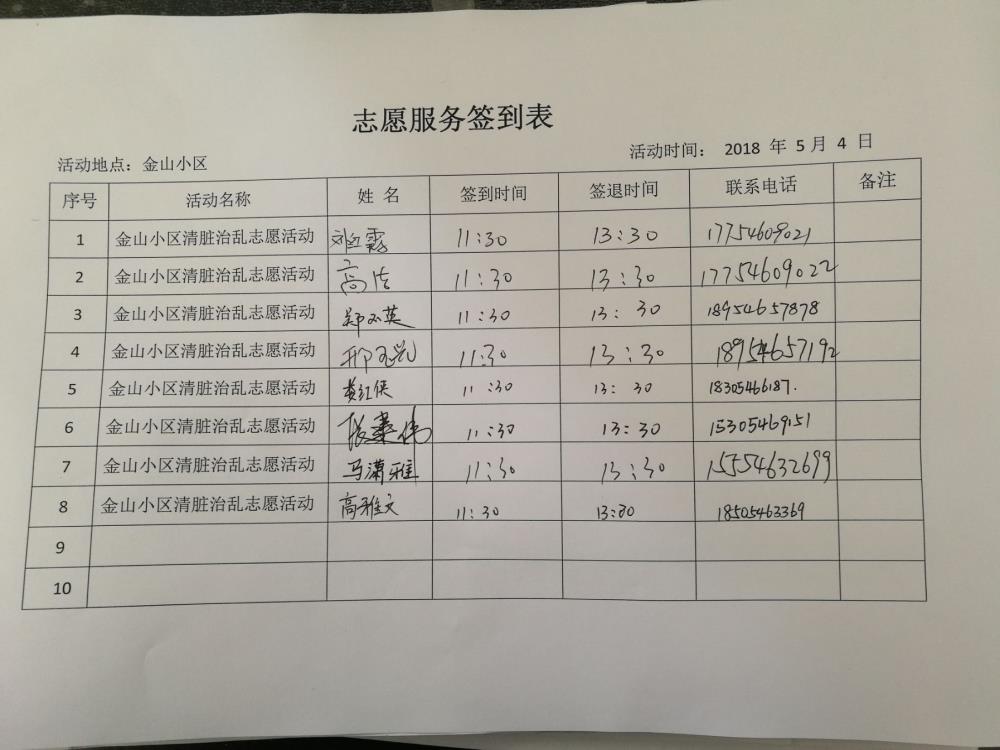 志愿服务签到表
活动地点：金山小区 活动时间： 2018 年 5 月 4 日
序号 活动名称 姓 名 签到时间 签退时间 联系电话 备注
1 金山小区清脏治乱志愿活动 刘红霞 11:30 13:30 17754609021
2 金山小区清脏治乱志愿活动 高洁 11:30 13:30 17754609022
3 金山小区清脏治乱志愿活动 郑英 11:30 13:30 18954657878
4 金山小区清脏治乱志愿活动 邢 11:30 13:30 18954657192
5 金山小区清脏治乱志愿活动 黄红侠 11:30 13:30 18305466187.
6 金山小区清脏治乱志愿活动 张 伟 11:30 13:30 15305469151
7 金山小区清脏治乱志愿活动 马潇雅 11:30 13:30 15554632699
8 金山小区清脏治乱志愿活动 高雅文 11:30 13:30 18505463369
9
10